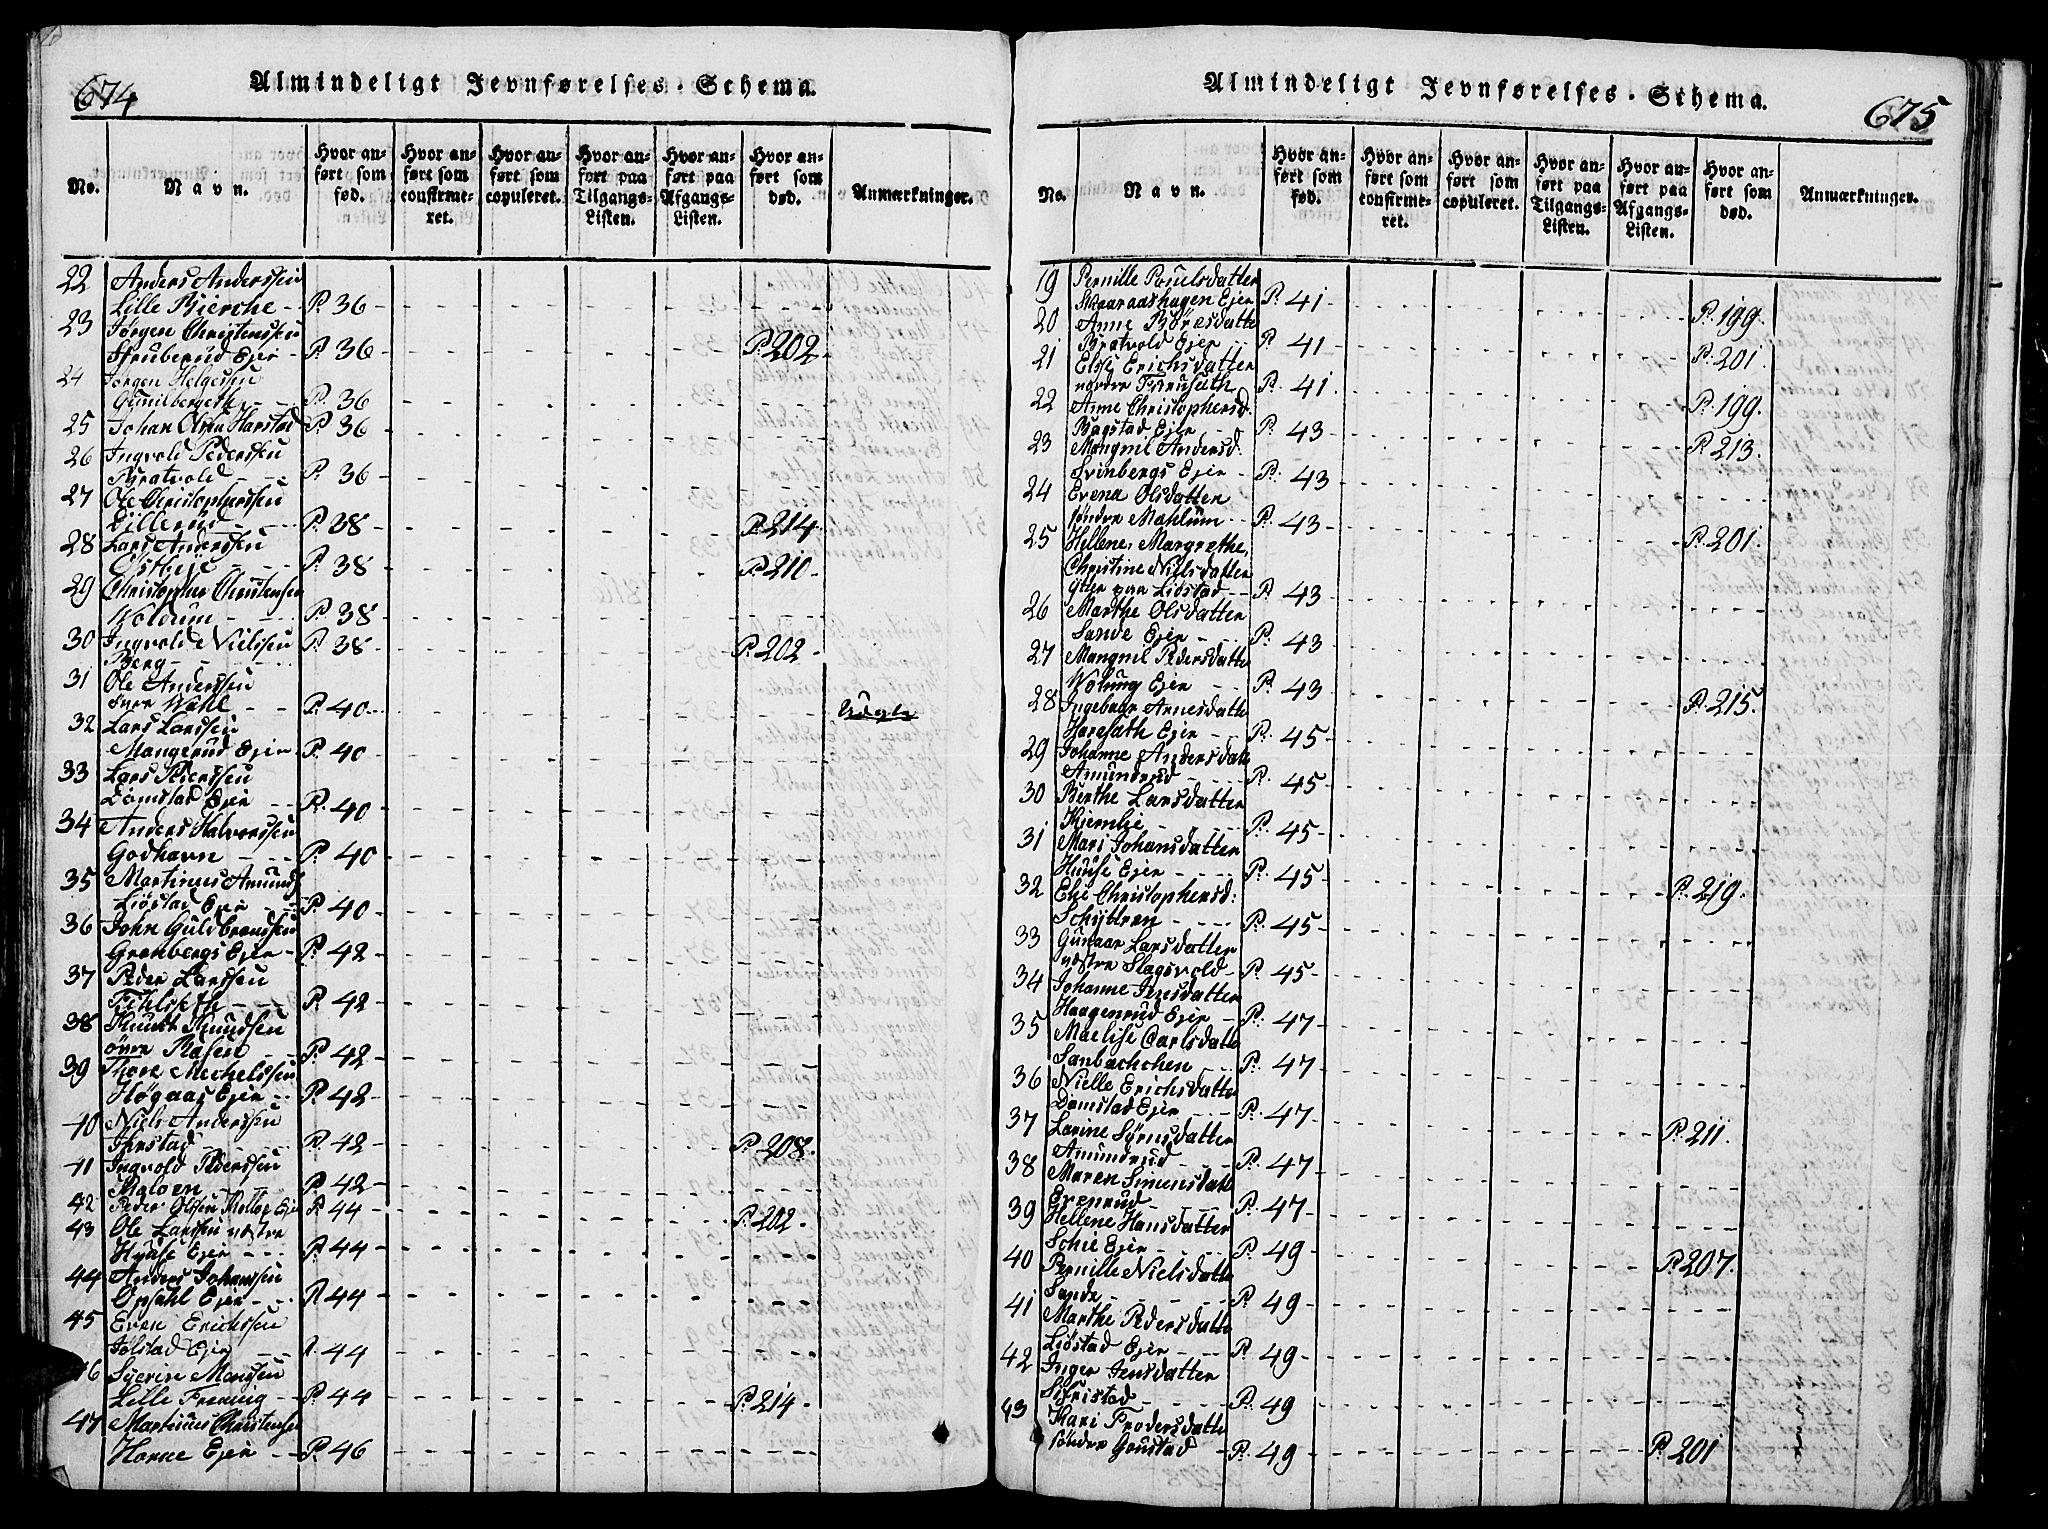 674
Almindeligt Jevnførelses-Schema.
No.
Navn.
Hvor an-
ført som
fød.
Hvor an-
ført som
confirme-
ret.
Hvor an-
ført som
copuleret.
Hvor an-
ført paa
Tilgangs-
Listen.
Hvor an-
ført paa
Afgangs-
Listen.
Hvor an-
ført som
død.
Anmærkninger.
22 Anders Anderssen
Lille Bierche P. 36
23 Jørgen Christenssen
Struberud Ejer P. 36 P. 202
24 Jørgen Helgessen
P. 36
25 Johan Olsen Harstad P. 36
26 Ingvold Pederssen
Bratvold P. 36
27 Ole Christopherssen
Lillerud P. 38 P. 214
28 Lars Anderssen
Østbye P. 38 P. 210
29 Christopher Christensen
Woldum P. 38
30 Ingvold Nielssen P. 38 P. 202
Berg
31 Ole Anderssen
øvre Wahl P. 40
32 Lars Larssen
Mangerud Ejer P. 40
33 Lars Pederssen
Domstad Ejer P. 40
34 Anders Halvorssen
Godhavn P. 40
35 Martinus Amunds
Liøstad Ejer P. 40
36 John Guldbrandssen
Grønbergs Ejer P. 42
37 Peder Larssen
P. 42
38 Knudt Knudsen
øvre Rasen P. 42
39 Thore Mechelssen
Høgaas Ejer P. 42
40 Niels Anderssen
P. 42 P. 208
41 Ingvold Pederssen
Maloen P. 42
42 Peder Olsen Ejer P. 44 P. 202
43 Ole Larssen vestre
Hyuse Ejer P. 44
44 Anders Johanssen
Opsahl Ejer P. 44
45 Even Erichssen
Jølstad Ejer P. 44
46 Syverin Monssen
Lille Frennig P. 44 P. 214
47 Martinus Christensen
Horne Ejer P. 46
Almindeligt Jevnførelses-Schema.
675
No.
Navn.
Hvor an-
ført som
fød.
Hvor an-
ført som
confirme-
ret.
Hvor an-
ført som
copuleret.
Hvor an-
ført paa
Tilgangs-
Listen.
Hvor an-
ført paa
Afgangs-
Listen.
Hvor an-
ført som
død.
Anmærkninger.
19 Pernille Poulsdatter
Skaaraashagen Ejer P. 41 P. 199
20 Anne Børesdatte
Bratvold Ejer P. 41 P. 201
21 Else Erichsdatter
nordre P. 41 P. 199
22 Anne Christophersd.
Bagstad Ejer P. 43 P. 213
23 Mangnil Andersd.
Svinbergs Ejer P. 43
24 Evena Olsdatter
søndre Mahlum P. 43 P. 201
25 Hellene, Margrethe,
Christine Nielsdatter
Liøstad P. 43
26 Marthe Olsdatter
Sande Ejer P. 43
27 Mangnil Pedersdatte
Wolung Ejer P. 43 P. 215
28 Ingebaar Arnesdatte
Haresath Ejer P. 45
29 Johanne Andersdatt
Amundrud P. 45
30 Berthe Larsdatter
Kjernlie P. 45
31 Mari Johansdatter
Huuse Ejer P. 45 P. 219
32 Else Christophersd:
Schytren P. 45
33 Gunaar Larsdatter
vestre Slagsvold P. 45
34 Johanne Jensdatter
Haagenrud Ejer P. 47
35 Maelise Carlsdatte
Sanbachchen P. 47
36 Nielle Erichsdatte
Domstad Ejer P. 47 P. 211
37 Larine Sørnsdatter
Amundrud P. 47
38 Maren Simensdatt
Evenrud P. 47
39 Hellene Hansdatter
Schie Ejer P. 49 P. 207
40 Pernille Nielsdatte
Sande P. 49
41 Marthe Pedersdatte
Liøstad Ejer P. 49
42 Inger Jensdatter
Sifristad P. 49
43 Kari Frodersdatte
søndre Gaustad P. 49 P. 201